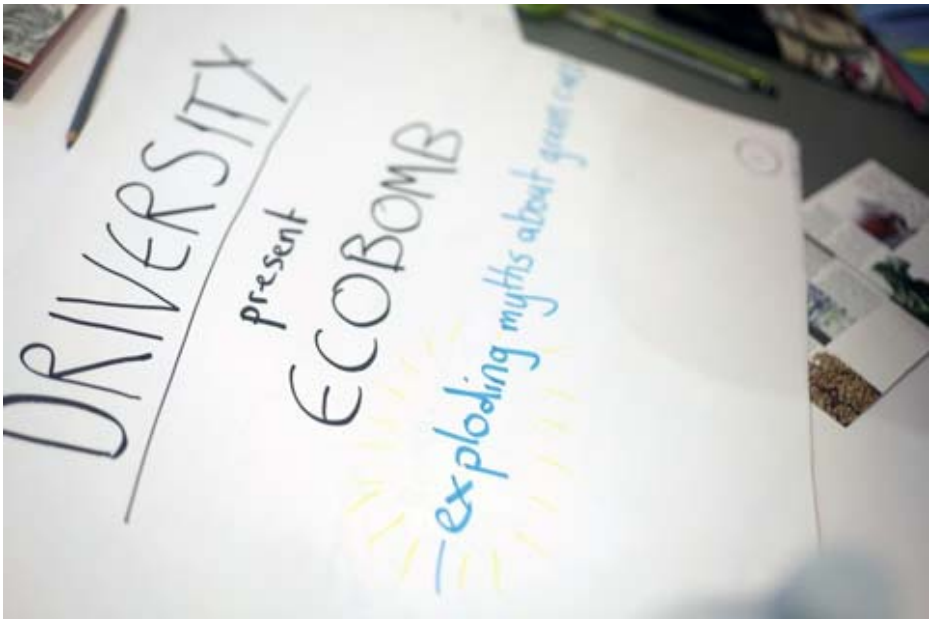 DRIVERSITY
present
ECOBOMB
— exploding myths about green cars